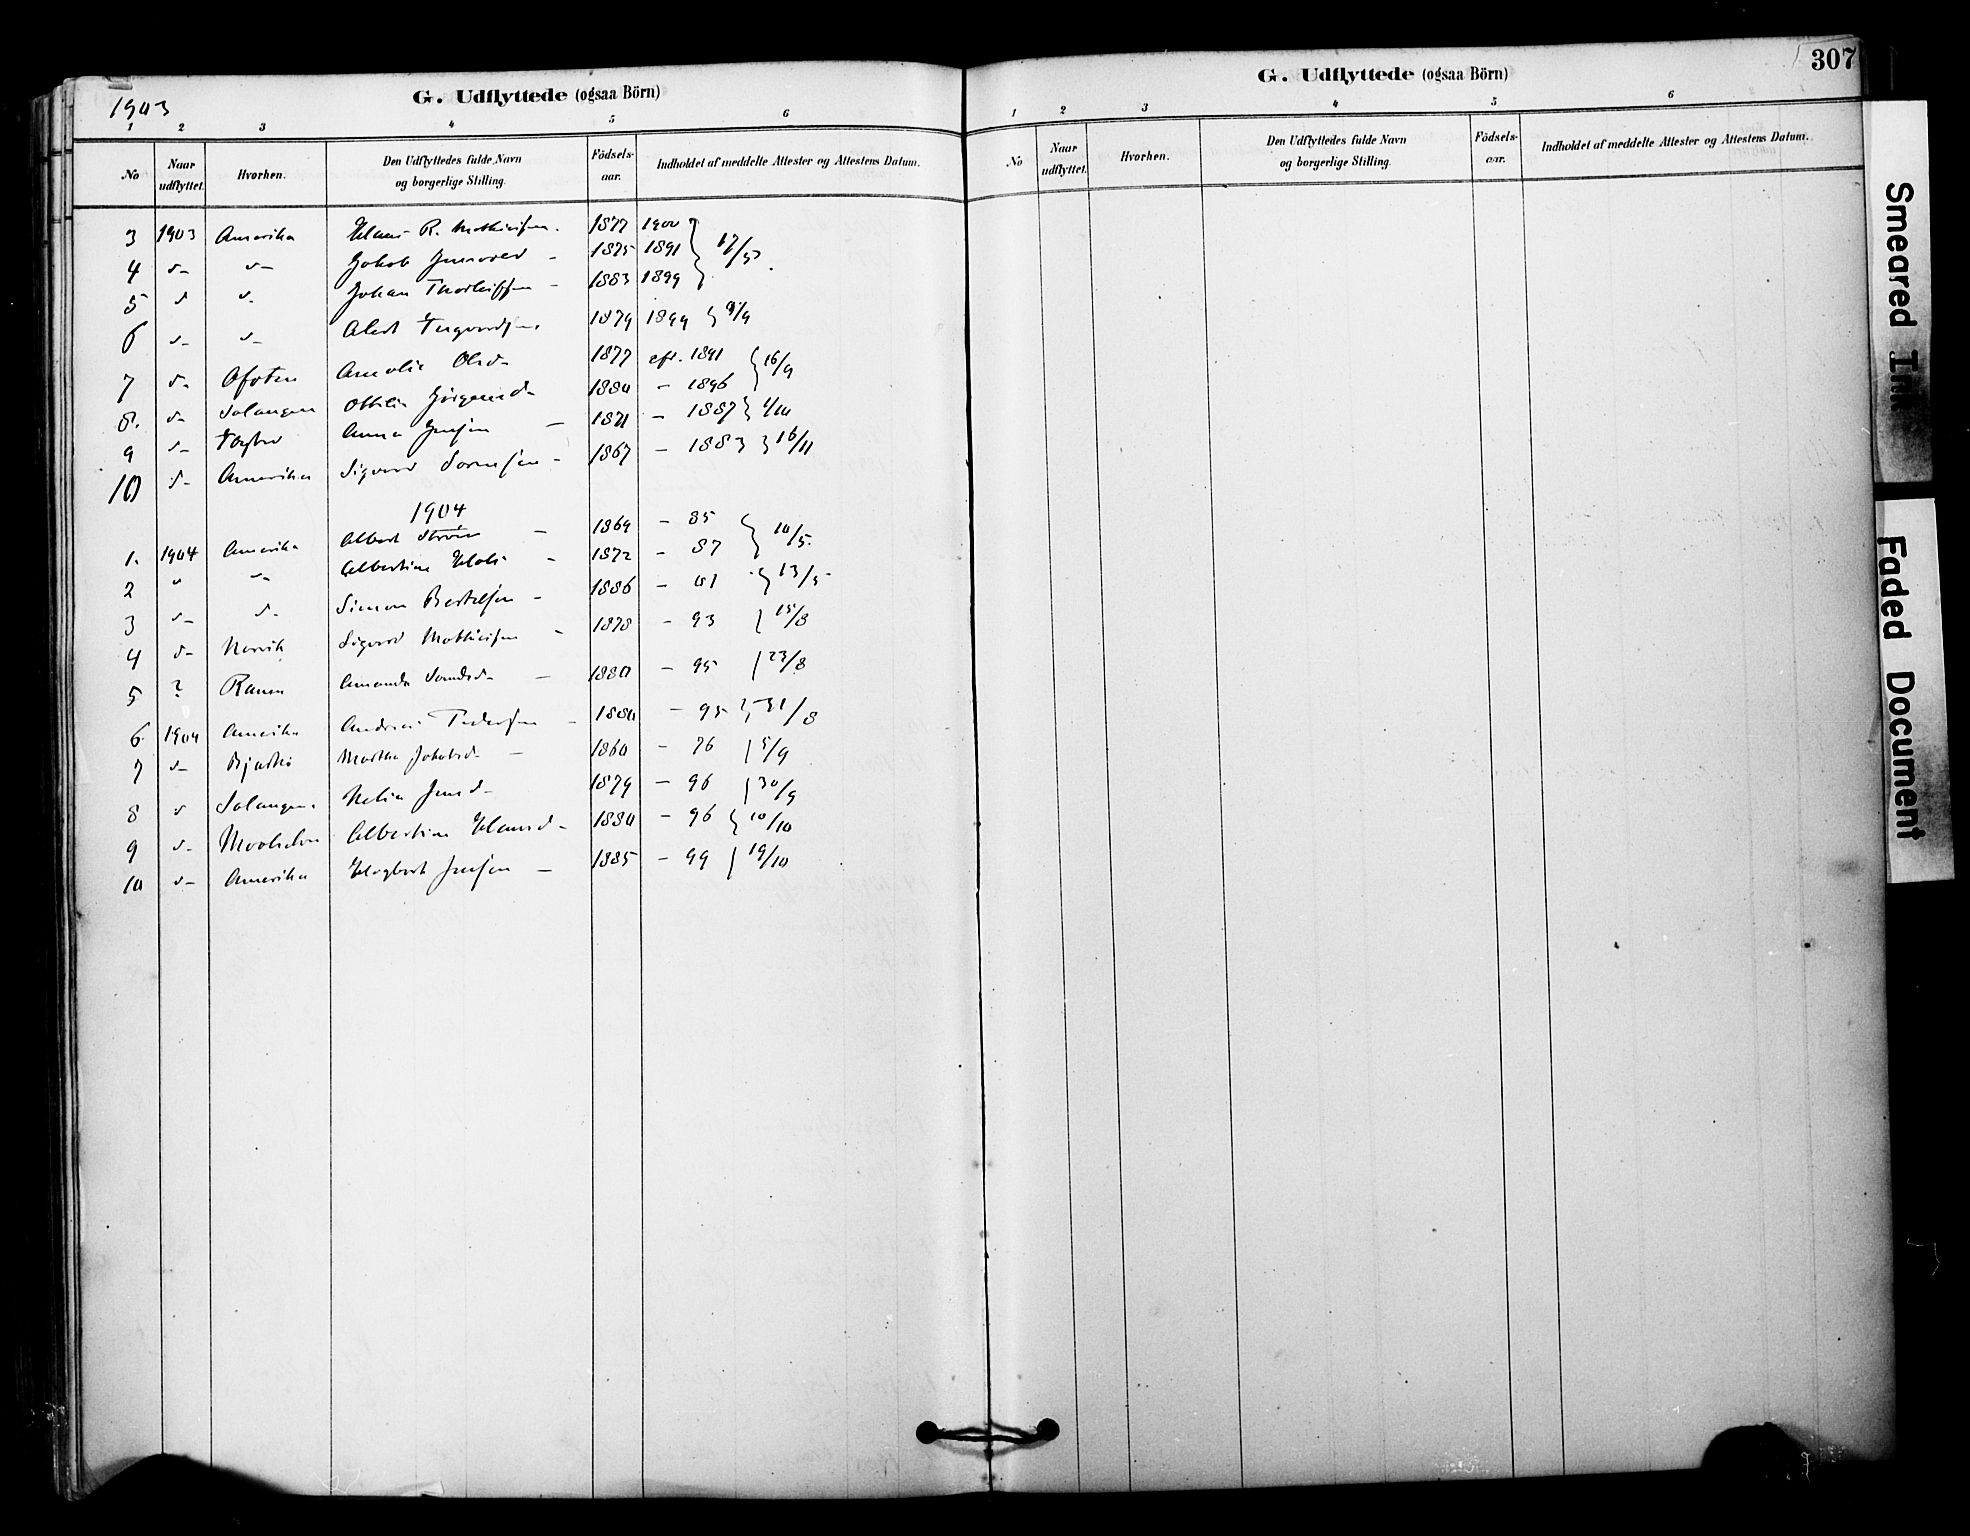 307
1903
G. Udflyttede (ogsaa Börn)
1 2 3 4 5 6
No Naar udflyttet. Hvorhen. Den Udflyttedes fulde Navn og borgerlige Stilling. Födsels-aar. Indholdet af meddelte Attester og Attestens Datum.
3 1903 Amerika R. Mathisen. 1877 1900
4 d- d- Jakob - 1875 1891 } 17/5
5 d d- Johan - 1883 1899
6 d- d- 1879 1899 } 9/9
7 d- Ofoten Amalie Olsd- 1877 eft. 1891 } 16/9
8. d- Salangen Ottilie 1880 - 1896
9 d- Anna Jensen - 1871 - 1887 } 1/10
10 d- Amerika Sigvard Sørensen - 1867 - 1883 } 16/11
1904
1. 1904 Amerika Albert Strøm - 1869 - 85 } 10/5.
2 " "- Albertine - 1872 - 87
3 d- d- Simon Bertelsen - 1886 - 01 } 13/5
4 d- Narvik Sigvard Mathisen - 1878 - 93 } 15/8
5 ? Ranen Amanda - 1880 - 95 } 23/8
6. 1904 Amerika Andreas Pedersen - 1880 - 95 } 31/8
7 d- Bjarkø Martha Jakobsd- - 1860 - 76 } 5/9
8 d Salangen. 1879 - 96 } 30/9
9 d- Albertine Hansd- 1880 - 96 } 10/10
10 d- Amerika Jensen - 1885 - 99 } 19/10
G. Udflyttede (ogsaa Börn)
1 2 3 4 5 6
No Naar udflyttet. Hvorhen. Den Udflyttedes fulde Navn og borgerlige Stilling. Födsels-aar. Indholdet af meddelte Attester og Attestens Datum.
Smeared Ink
Faded Document